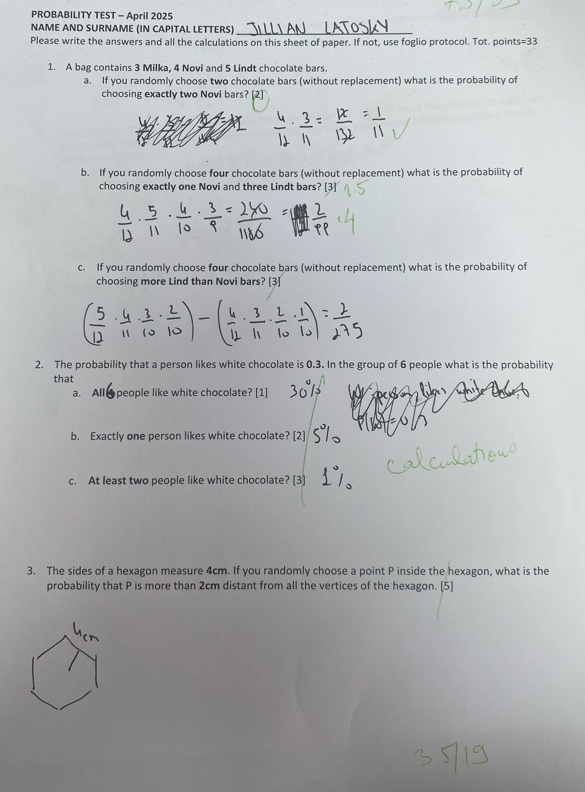 7.5/33
PROBABILITY TEST – April 2025
NAME AND SURNAME (IN CAPITAL LETTERS) JILLIAN LATOSKY
Please write the answers and all the calculations on this sheet of paper. If not, use foglio protocol. Tot. points=33
1. A bag contains 3 Milka, 4 Novi and 5 Lindt chocolate bars.
a. If you randomly choose two chocolate bars (without replacement) what is the probability of
choosing exactly two Novi bars? [2]
4/12 · 3/11 = 12/132 = 1/11 ✓
b. If you randomly choose four chocolate bars (without replacement) what is the probability of
choosing exactly one Novi and three Lindt bars? [3] 1.5
4/12 · 5/11 · 4/10 · 3/9 = 240/1186 = 2/99 ·4
c. If you randomly choose four chocolate bars (without replacement) what is the probability of
choosing more Lind than Novi bars? [3]
(5/12 · 4/11 · 3/10 · 2/10) − (4/12 · 3/11 · 2/10 · 1/10) = 2/275
2. The probability that a person likes white chocolate is 0.3. In the group of 6 people what is the probability
that
a. All 6 people like white chocolate? [1] 30%
b. Exactly one person likes white chocolate? [2] 5%
calculations
c. At least two people like white chocolate? [3] 1%
3. The sides of a hexagon measure 4cm. If you randomly choose a point P inside the hexagon, what is the
probability that P is more than 2cm distant from all the vertices of the hexagon. [5]
4cm
3.5/19